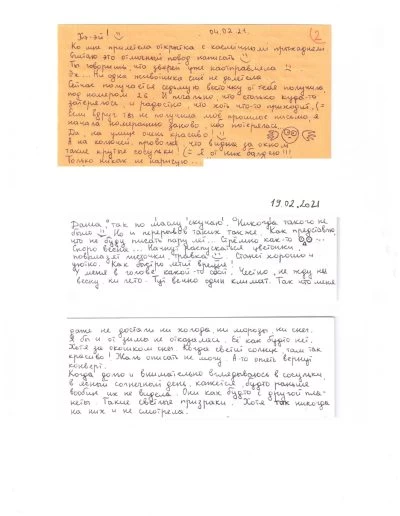 Хэ-эй!
04.02.21.
2
Ко мне прилетела открытка с касличной прохождени
Считаю это отличный повод написать
Ты говоришь, что зверей уже наотправляла
Эх... Ни одна животинка ещё не долетела
Сейчас получается седьмую весточку от тебя получила,
под номером 26. И печально, что столько куда-то
затерялось, и радостно, что хоть что-то приходит, (=
Если вдруг ты не получила моё прошлое письмо, я
начала нумерацию заново, ибо потерялась.
Да, на улице очень красиво!
А на колючей проволоке, что видна за окном
такие крутые сосульки! (= Я от них балдею!!!
Только никак не нарисую...
19.02.2021
Даша, так по маслу скучаю. Никогда такого не
было. Но и перерывов таких также. Как представлю,
что не буду писать пару лет... Стрёмно как-то
Скоро весна... Начнут распускаться цветочки,
повылазят листочки, травка. Станет хорошо и
уютно. Как быстро летит время!
У меня в голове какой-то сбой. Честно, не жду ни
весну ни лето. Тут вечно один климат. Так что меня
даже не достали ни холода, ни морозы, ни снег.
Я бы и от зимы не отказалась. Её как будто нет.
Хотя за окошком снег. Когда светит солнце там так
красиво! Жаль описать не могу. А то опять вернут
конверт.
Когда долго и внимательно вглядываюсь в сосульки,
в ясный солнечный день, кажется, будто раньше
вообще их не видела. Они как будто с другой пла-
неты. Такие светлые призраки. Хотя так никогда
на них и не смотрела.